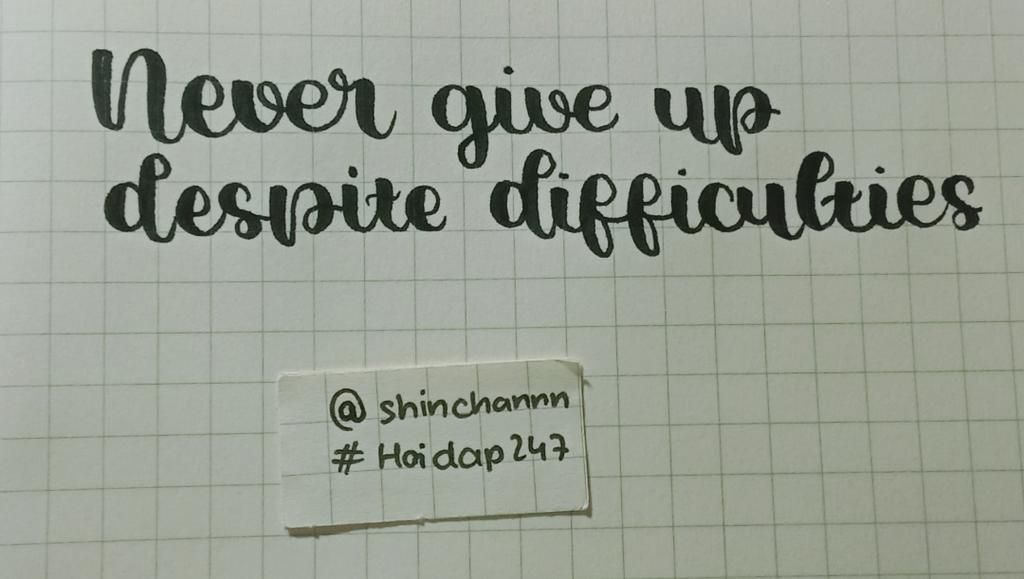 Never give up
despite difficulties
@ shinchannn
# Hoidap247